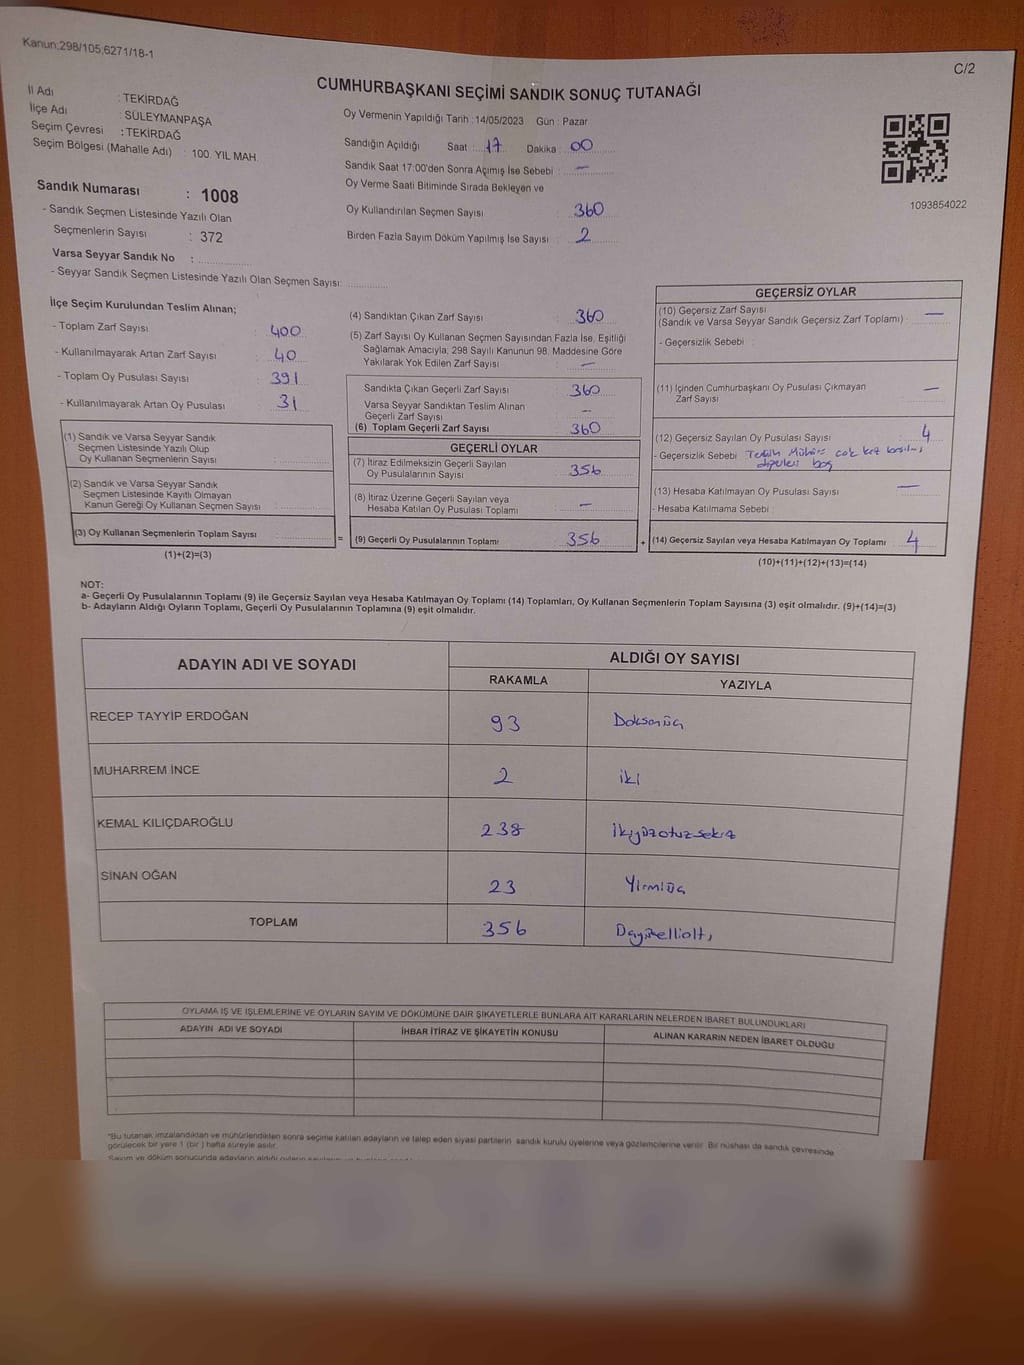 Kanun;298/105;6271/18-1
C/2
CUMHURBAŞKANI SEÇİMİ SANDIK SONUÇ TUTANAĞI
İl Adı : TEKİRDAĞ
İlçe Adı : SÜLEYMANPAŞA
Seçim Çevresi : TEKİRDAĞ
Seçim Bölgesi (Mahalle Adı) : 100. YIL MAH.
Sandık Numarası : 1008
- Sandık Seçmen Listesinde Yazılı Olan
Seçmenlerin Sayısı : 372
Varsa Seyyar Sandık No :
- Seyyar Sandık Seçmen Listesinde Yazılı Olan Seçmen Sayısı:
Oy Vermenin Yapıldığı Tarih : 14/05/2023 Gün : Pazar
Sandığın Açıldığı Saat : 17 Dakika : 00
Sandık Saat 17:00'den Sonra Açımış İse Sebebi : —
Oy Verme Saati Bitiminde Sırada Bekleyen ve
Oy Kullandırılan Seçmen Sayısı : 360
Birden Fazla Sayım Döküm Yapılmış İse Sayısı : 2
1093854022
İlçe Seçim Kurulundan Teslim Alınan;
- Toplam Zarf Sayısı : 400
- Kullanılmayarak Artan Zarf Sayısı : 40
- Toplam Oy Pusulası Sayısı : 391
- Kullanılmayarak Artan Oy Pusulası : 31
(1) Sandık ve Varsa Seyyar Sandık
Seçmen Listesinde Yazılı Olup
Oy Kullanan Seçmenlerin Sayısı :
(2) Sandık ve Varsa Seyyar Sandık
Seçmen Listesinde Kayıtlı Olmayan
Kanun Gereği Oy Kullanan Seçmen Sayısı :
(3) Oy Kullanan Seçmenlerin Toplam Sayısı :
(1)+(2)=(3)
(4) Sandıktan Çıkan Zarf Sayısı : 360
(5) Zarf Sayısı Oy Kullanan Seçmen Sayısından Fazla İse, Eşitliği
Sağlamak Amacıyla, 298 Sayılı Kanunun 98. Maddesine Göre
Yakılarak Yok Edilen Zarf Sayısı : —
Sandıkta Çıkan Geçerli Zarf Sayısı : 360
Varsa Seyyar Sandıktan Teslim Alınan
Geçerli Zarf Sayısı : —
(6) Toplam Geçerli Zarf Sayısı : 360
GEÇERLİ OYLAR
(7) İtiraz Edilmeksizin Geçerli Sayılan
Oy Pusulalarının Sayısı : 356
(8) İtiraz Üzerine Geçerli Sayılan veya
Hesaba Katılan Oy Pusulası Toplamı : —
= (9) Geçerli Oy Pusulalarının Toplamı : 356
GEÇERSİZ OYLAR
(10) Geçersiz Zarf Sayısı
(Sandık ve Varsa Seyyar Sandık Geçersiz Zarf Toplamı) : —
- Geçersizlik Sebebi :
(11) İçinden Cumhurbaşkanı Oy Pusulası Çıkmayan
Zarf Sayısı : —
(12) Geçersiz Sayılan Oy Pusulası Sayısı : 4
- Geçersizlik Sebebi : Tercih Mührü çok kez basılmış
boş
(13) Hesaba Katılmayan Oy Pusulası Sayısı : —
- Hesaba Katılmama Sebebi :
+ (14) Geçersiz Sayılan veya Hesaba Katılmayan Oy Toplamı : 4
(10)+(11)+(12)+(13)=(14)
NOT:
a- Geçerli Oy Pusulalarının Toplamı (9) ile Geçersiz Sayılan veya Hesaba Katılmayan Oy Toplamı (14) Toplamları, Oy Kullanan Seçmenlerin Toplam Sayısına (3) eşit olmalıdır. (9)+(14)=(3)
b- Adayların Aldığı Oyların Toplamı, Geçerli Oy Pusulalarının Toplamına (9) eşit olmalıdır.
ADAYIN ADI VE SOYADI
ALDIĞI OY SAYISI
RAKAMLA YAZIYLA
RECEP TAYYİP ERDOĞAN 93 Doksanüç
MUHARREM İNCE 2 iki
KEMAL KILIÇDAROĞLU 238 ikiyüzotuzsekiz
SİNAN OĞAN 23 Yirmiüç
TOPLAM 356 Üçyüzellialtı
OYLAMA İŞ VE İŞLEMLERİNE VE OYLARIN SAYIM VE DÖKÜMÜNE DAİR ŞİKAYETLERLE BUNLARA AİT KARARLARIN NELERDEN İBARET BULUNDUKLARI
ADAYIN ADI VE SOYADI İHBAR İTİRAZ VE ŞİKAYETİN KONUSU ALINAN KARARIN NEDEN İBARET OLDUĞU
*Bu tutanak imzalandıktan ve mühürlendikten sonra seçime katılan adayların ve talep eden siyasi partilerin sandık kurulu üyelerine veya gözlemcilerine verilir. Bir nüshası da sandık çevresinde
görülecek bir yere 1 (bir ) hafta süreyle asılır.
Sayım ve döküm sonucunda adayların aldığı oyların